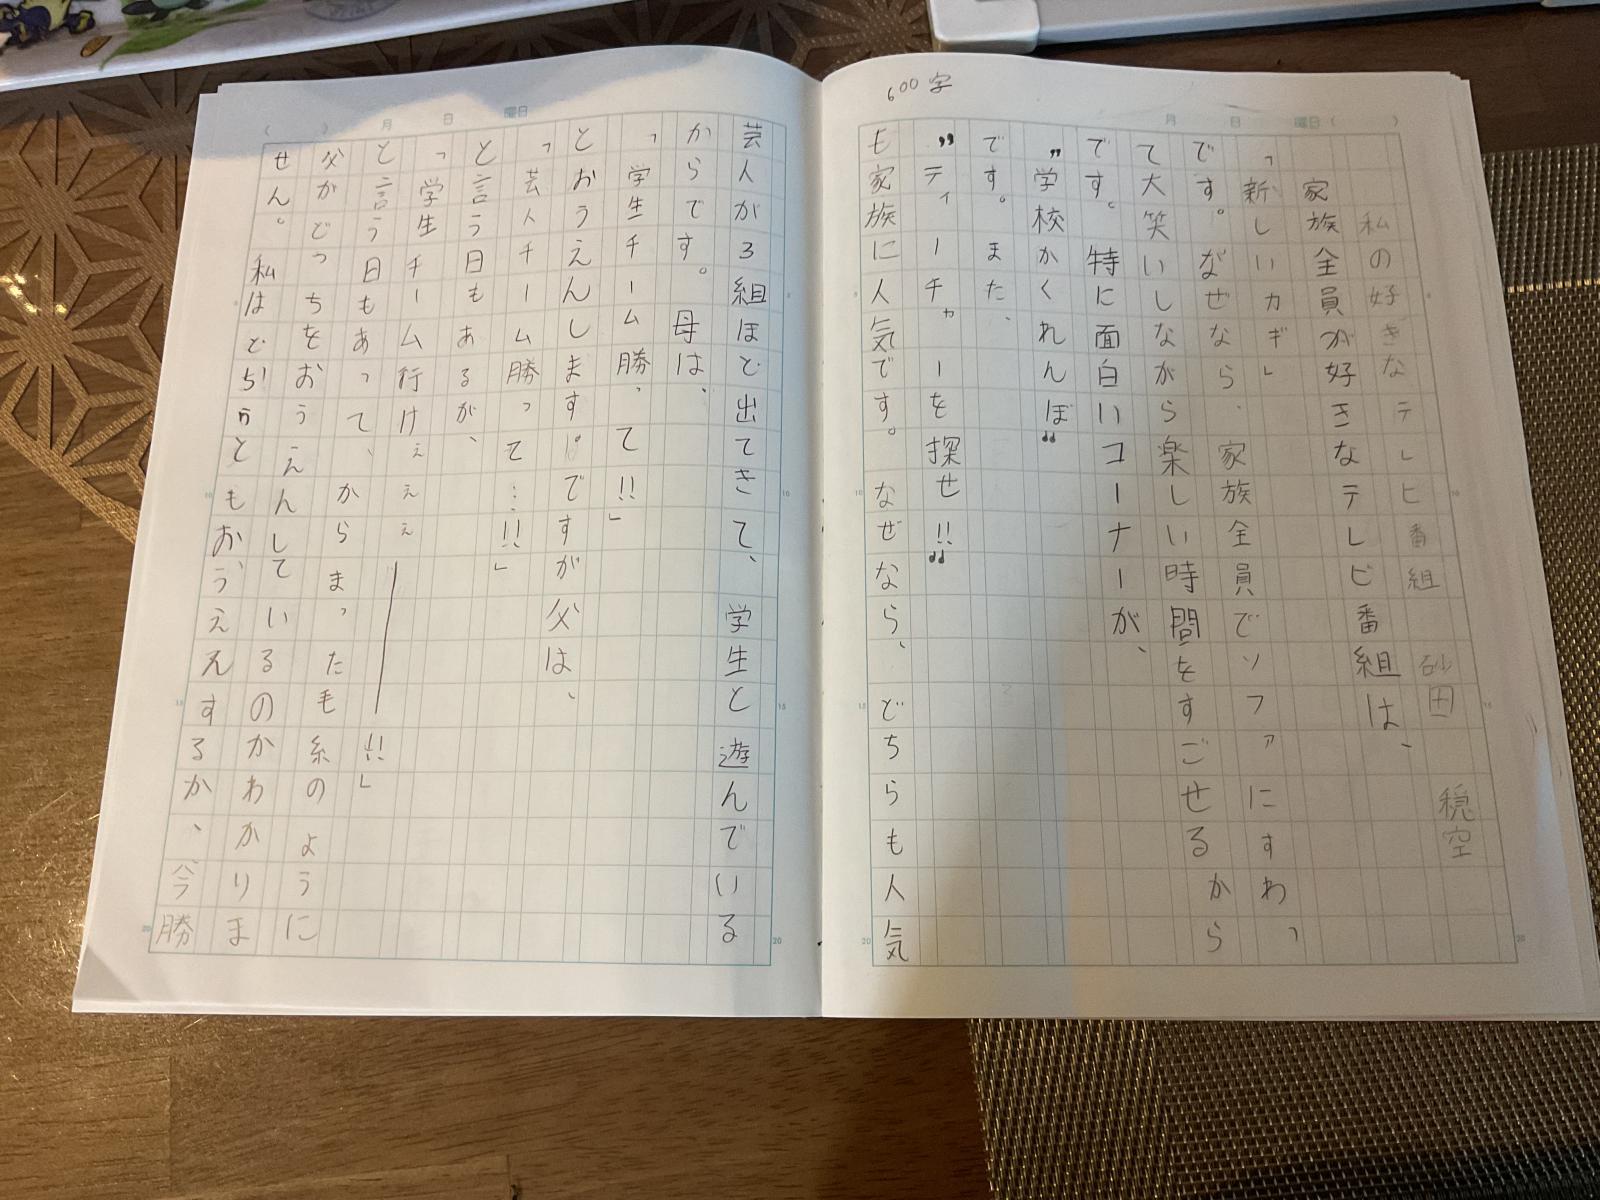 600字
月 日 曜日( )
私の好きなテレビ番組
砂田 穏空
家族全員が好きなテレビ番組は、
「新しいカギ」
です。なぜなら、家族全員でソファにすわっ
て大笑いしながら楽しい時間をすごせるから
です。特に面白いコーナーが、
〝学校かくれんぼ〟
です。また、
〝ティーチャーを探せ!!〟
も家族に人気です。なぜなら、どちらも人気
( ) 月 日 曜日
芸人が3組ほど出てきて、学生と遊んでいる
からです。母は、
「学生チーム勝って!!」
とおうえんします。ですが父は、
「芸人チーム勝って…!!」
と言う日もあるが、
「学生チーム行けぇぇぇ――!!」
と言う日もあって、からまった毛糸のように
父がどっちをおうえんしているのかわかりま
せん。私はどちらともおうえんするか、今勝